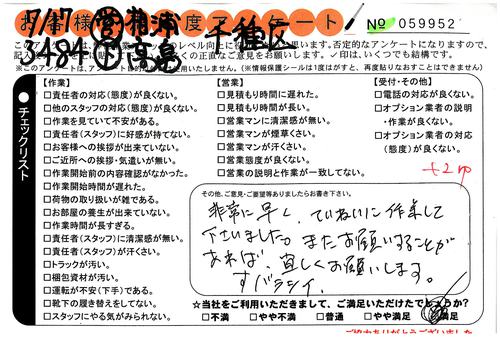 7/17 営 相浦 千種区
お客様満足度アンケート
No 059952
3484 高島
【作業】
□責任者の対応(態度)が良くない。
□他のスタッフの対応(態度)が良くない。
□作業を見ていて不安がある。
□責任者(スタッフ)に好感が持てない。
□お客様への挨拶が出来ていない。
□ご近所への挨拶・気遣いが無い。
□作業開始前の内容確認がなかった。
□作業開始時間が遅れた。
□荷物の取り扱いが雑である。
□お部屋の養生が出来ていない。
□作業時間が長すぎる。
□責任者(スタッフ)に清潔感が無い。
□責任者(スタッフ)が汗くさい。
□トラックが汚い。
□梱包資材が汚い。
□運転が不安(下手)である。
□靴下の履き替えをしてない。
□スタッフにやる気がみられない。
【営業】
□見積もり時間に遅れた。
□見積もり時間が長い。
□営業マンに清潔感が無い。
□営業マンが煙草くさい。
□営業マンが汗くさい。
□営業態度が良くない。
□営業の説明と作業が一致してない。
【受付・その他】
□電話の対応が良くない。
□オプション業者の説明
・作業が良くない。
□オプション業者の対応
(態度)が良くない。
●チェックリスト
その他、ご意見・ご要望等ありましたらお書き下さい。
非常に早く、ていねいに作業して
下さいました。またお願いすることが
あれば、宜しくお願いします。
スバラシイ
☆当社をご利用いただきまして、ご満足いただけたでしょうか?
□不満 □やや不満 □普通 □やや満足 □満足
ご協力ありがとうございました